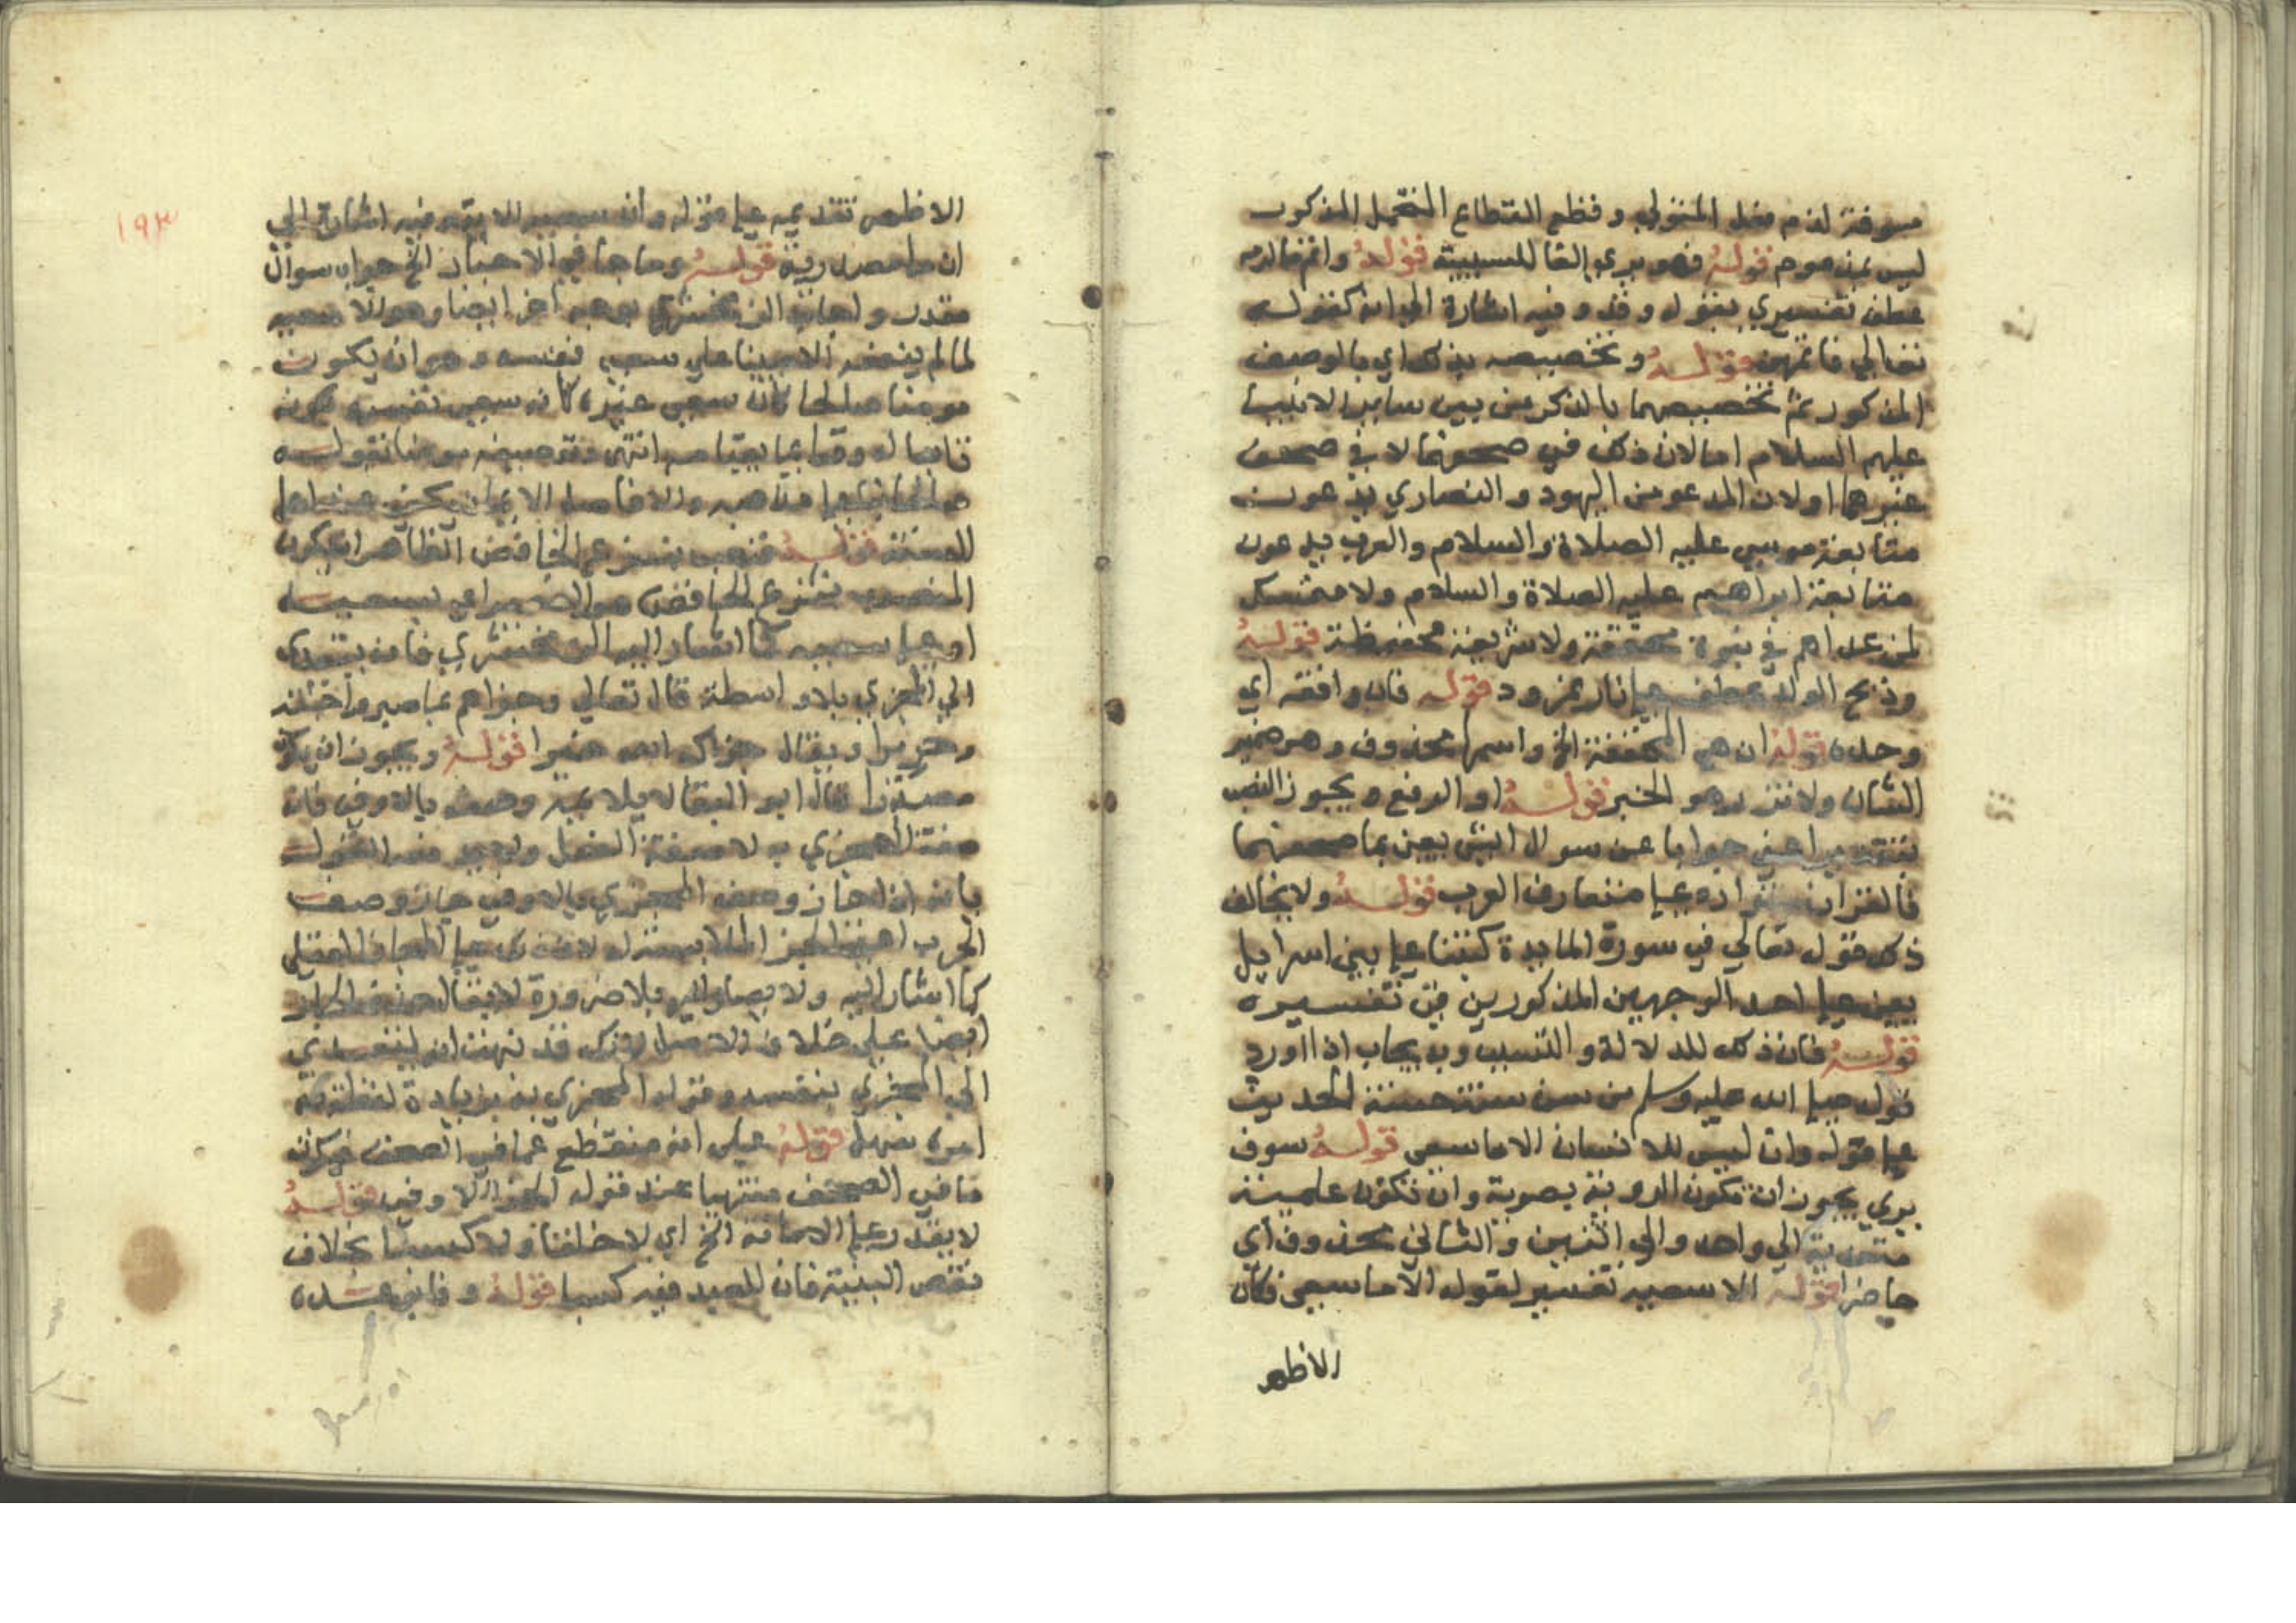 مسوقة لذم فعل المتولي وقطع القطاع التحمل المذكور
ليس بمذموم قوله فهو يرى الفا للسببية قوله واتمها الزم
عطف تفسيري بقوله وفى وفيه اشارة الى انه كقوله
تعالي فاتمهن قوله وتخصيصه بذلك اي بالوصف
المذكور ثم تخصيصهما بالذكر من بين ساير الانبيا
عليهم السلام اما لان ذلك في صحفهما لا في صحف
غيرهما او لان المدعو من اليهود والنصاري يدعون
متابعة موسي عليه الصلاة والسلام والعرب يدعون
متابعة ابراهيم عليه الصلاة والسلام ولا متمسك
لمن عداهم في نبوة محققة ولا شريعة محفوظة قوله
وذبح الولد عطف علي نار نمرود قوله فان وافقه اي
وحده قوله ان هي المخففة الخ واسمها محذوف وهو ضمير
الشان ولا تزر هو الخبر قوله او الرفع ويجوز النصب
بتقدير اعني جوابا عن سوال انيش يعني بما صحفهما
فالقران علي متعارف العرب قوله ولا يخالف
ذلك قوله تعالي في سورة المايدة كتبنا علي بني اسرايل
يعني علي احد الوجهين المذكورين في تفسيره
قوله فان ذلك للدلالة والتسبب وبه يجاب اذا اورد
قوله صلي الله عليه وسلم من سن سنة حسنة الحديث
علي قوله وان ليس للانسان الا ما سعي قوله سوف
يري يجوز ان تكون الروية بصرية وان تكون علمية
متعدية الي واحد والي اثنين والثاني محذوف اي
حاضرا قوله الا سعيه تفسير لقوله الا ما سعي فكان
الاظهر
١٩٣
الاظهر تقديمه علي قوله وان سعيه الاية وفيه اشارة الي
ان ما مصدرية قوله وما جا في الاخبار الخ جواب سوال
مقدر واجاب الزمخشري بوجه اخر ايضا وهو ان سعيه
لما لم ينفعه الا مبنيا علي سعي نفسه وهو ان يكون
مومنا صالحا كان سعي غيره كانه سعي نفسه لكونه
تابعا له وقايما بقيامه انتهي وتوصيفه مومنا بقوله
صالحا بنا علي مذهبه والا فاصل الايمان يكفي عند اهل
السنة قوله فنصب بنزع الخافض الظاهر ان يكون
المنصوب بنزع الخافض هو الضمير اي بسعيه
او علي سعيه كما اشار اليه الزمخشري فانه يتعدي
الي المجزي بلا واسطة قال تعالي وجزاهم بما صبروا جنة
وحريرا ويقال جزاك الله خيرا قوله ويجوز ان يكون
مصدرا قال ابو البقا لا يلايمه وصفه بالاوفي فان
صفة المجزي به لا صفة الفعل ولا يبعد منه القول
بانه اذا جاز وصف المجزي بالاوفي جاز وصف
الجزا به ايضا الملابسته له لان ذلك علي المجاز العقلي
كما اشار اليه ولا يصار اليه بلا ضرورة لا يقال حذف الجار
ايضا علي خلاف الاصل لانك قد نبهت انه ليتعدي
الي المجزي بنفسه وقوله المجزي به بزيادة لفظة به
امره سهل قوله علي انه منقطع عما في الصحف فيكون
ما في الصحف منتهيا عند قوله الجزاء الاوفي قوله
لا يقدر علي الاماتة الخ اي لا خلقا ولا كسبا بخلاف
نقض البنية فان للعبد فيه كسبا قوله وفا بوعده